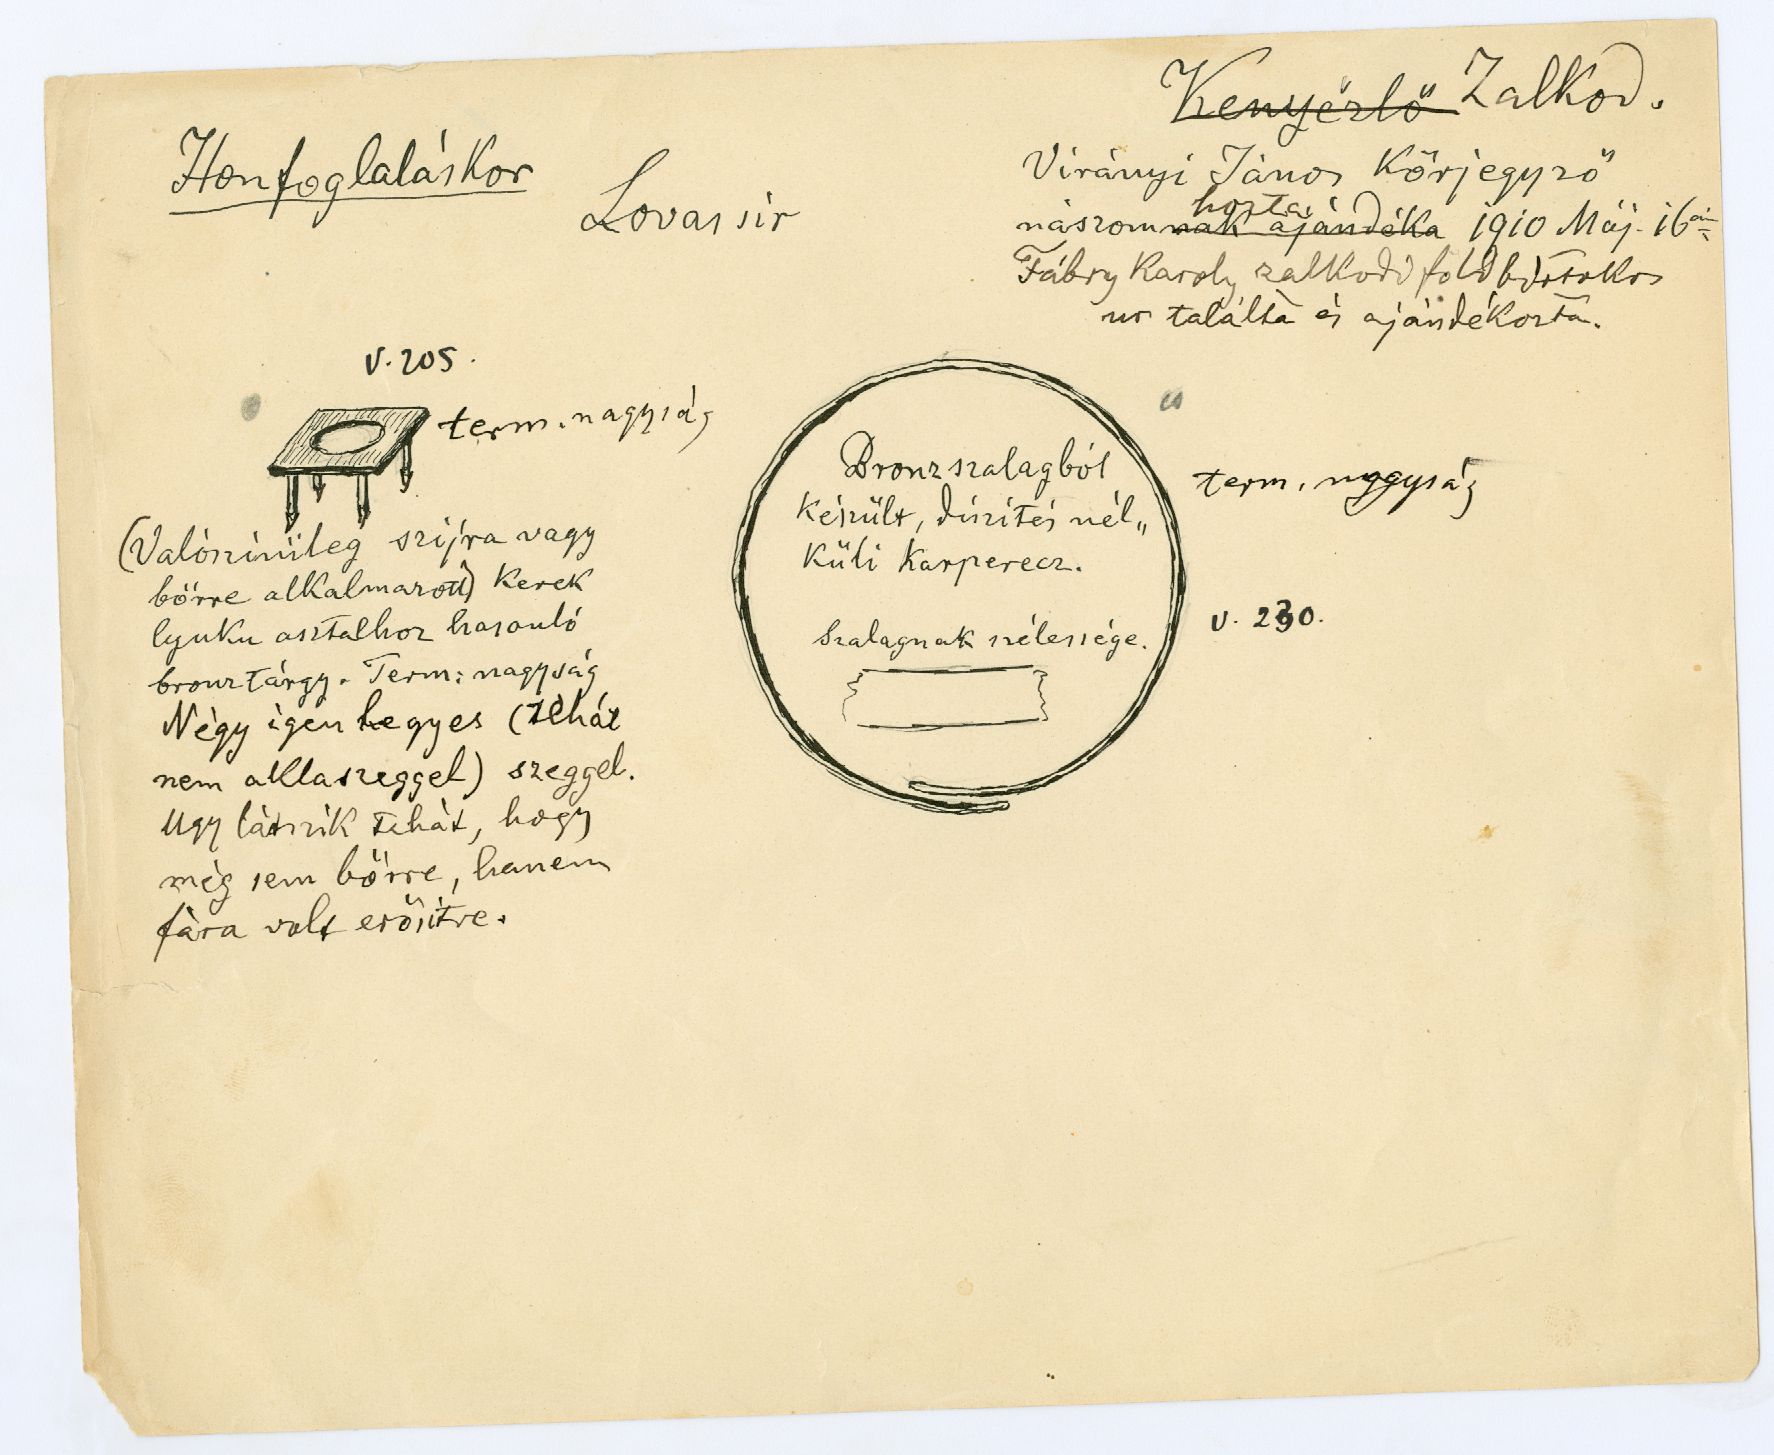 Kenyérlő Zalkod.
Honfoglaláskor
Lovassir
Virányi János Körjegyző
hozta
nászomnak ajándéka 1910 Máj. 16án
Fábry Karoly zalkodi földbirtokos
ur találta és ajándékozta.
V. 205.
term. nagyság
(Valószinüleg szijra vagy
bőrre alkalmazott) kerek
lyuku asztalhoz hasonló
bronztárgy. Term: nagyság
Négy igen hegyes (tehát
nem aklaszeggel) szeggel.
Ugy látszik tehát, hogy
még sem bőrre, hanem
fára volt erősitve.
Bronzszalagból
készült, diszités nél„
küli karperecz.
Szalagnak szélessége.
term. nagyság
V. 230.